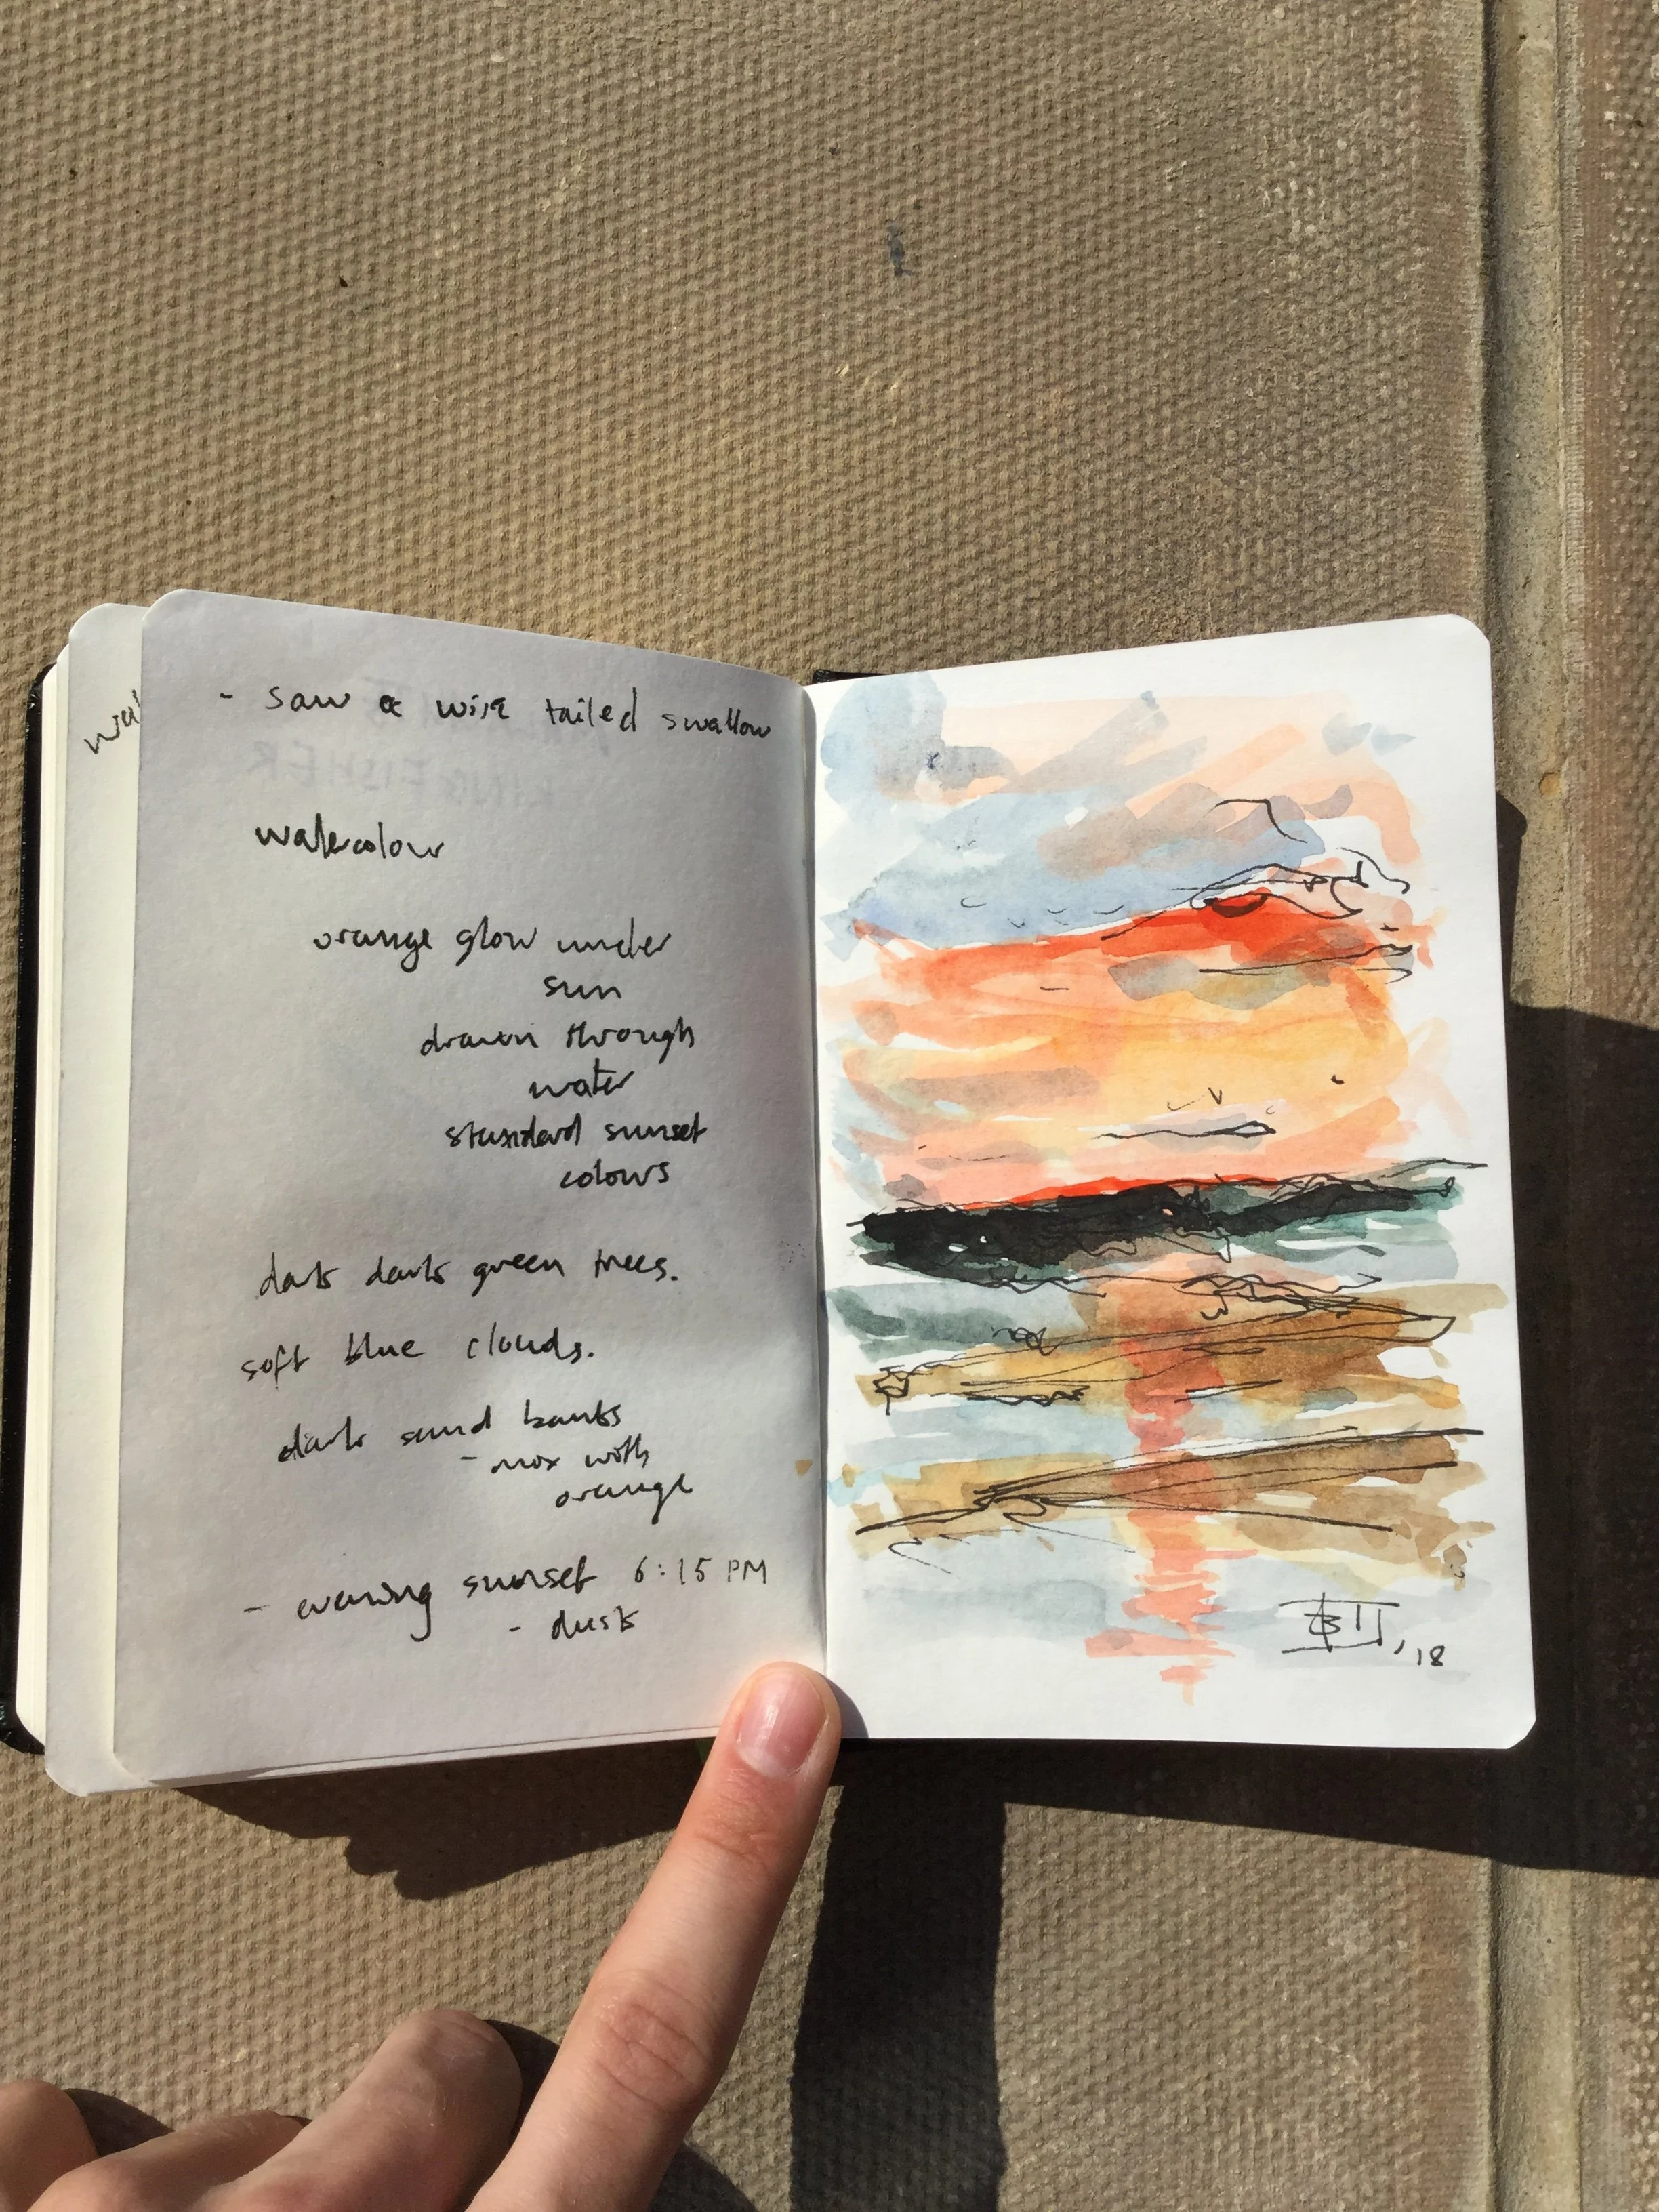 - saw a wire tailed swallow
watercolour
orange glow under
sun
drawn through
water
standard sunset
colours
dark dark green trees.
soft blue clouds.
dark sand banks
- mix with
orange
- evening sunset 6:15 PM
- dusk
,18